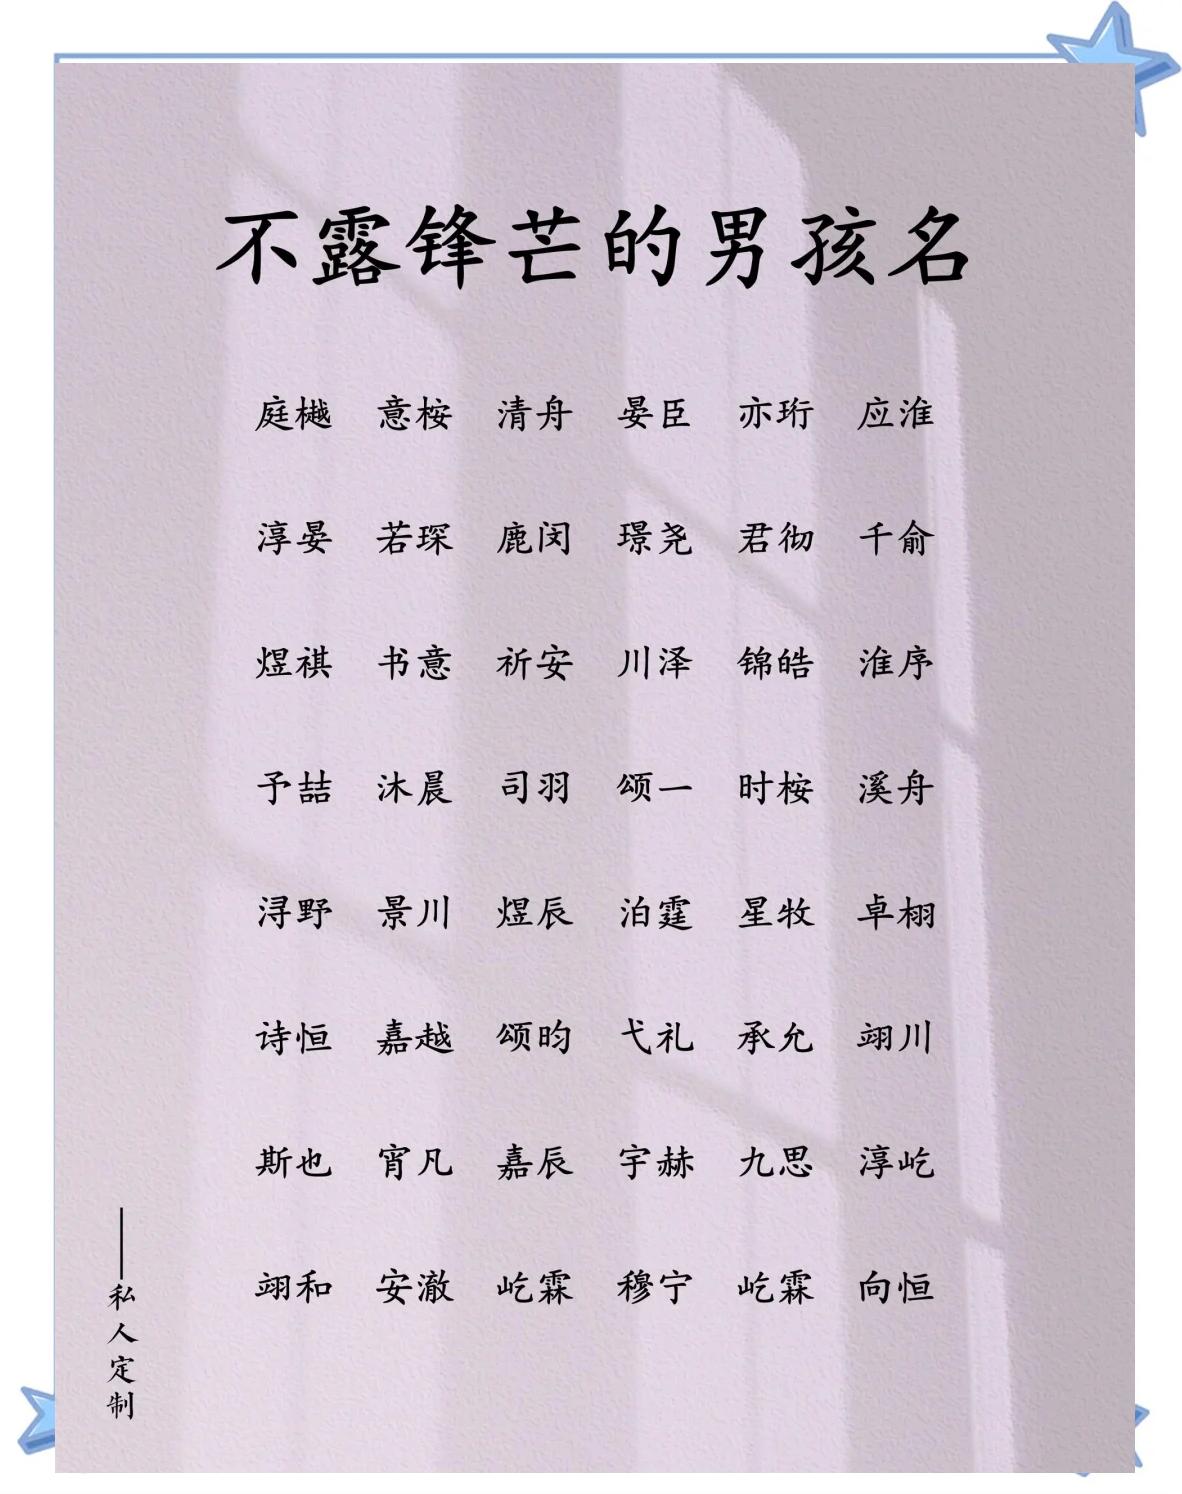 不露锋芒的男孩名
庭樾 意桉 清舟 晏臣 亦珩 应淮
淳晏 若琛 鹿闵 璟尧 君彻 千俞
煜祺 书意 祈安 川泽 锦皓 淮序
予喆 沐晨 司羽 颂一 时桉 溪舟
浔野 景川 煜辰 泊霆 星牧 卓栩
诗恒 嘉越 颂昀 弋礼 承允 翊川
斯也 宵凡 嘉辰 宇赫 九思 淳屹
翊和 安澈 屹霖 穆宁 屹霖 向恒
——私人定制